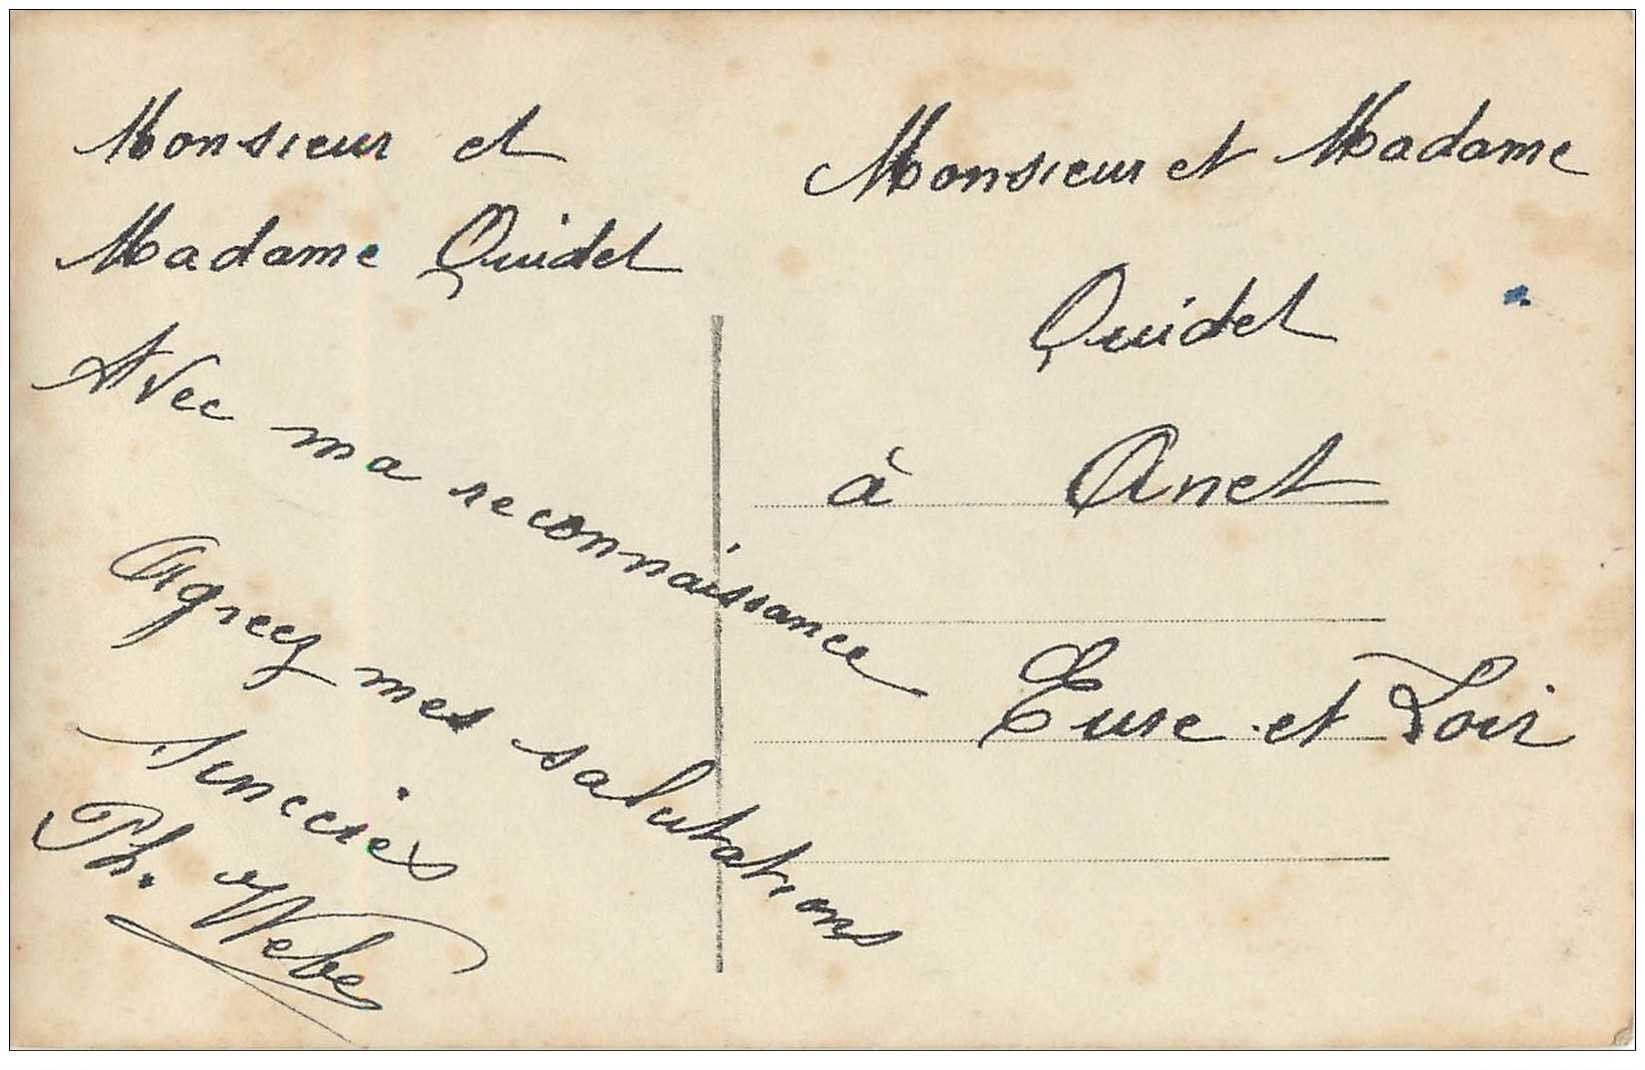 Monsieur et
Madame Quidet
Avec ma reconnaissance
Agreez mes salutations
sinceres
Ph. Weber
Monsieur et Madame
Quidet
à Anet
Eure et Loir